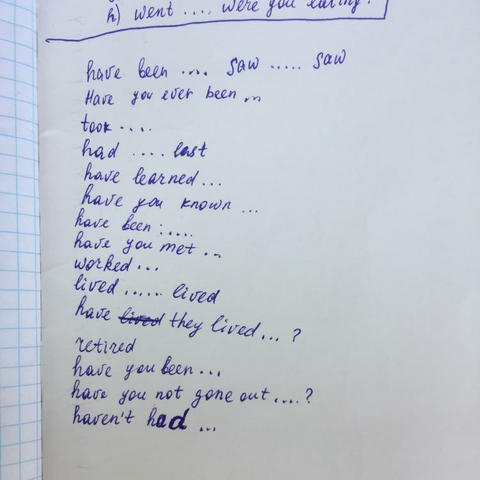 h) went .... were you eating?
have been .... saw ..... saw
Have you ever been ...
took ....
had .... last
have learned ...
have you known ...
have been :....
have you met ...
worked ...
lived ..... lived
have lived they lived ... ?
retired
have you been ...
have you not gone out .... ?
haven't had ...